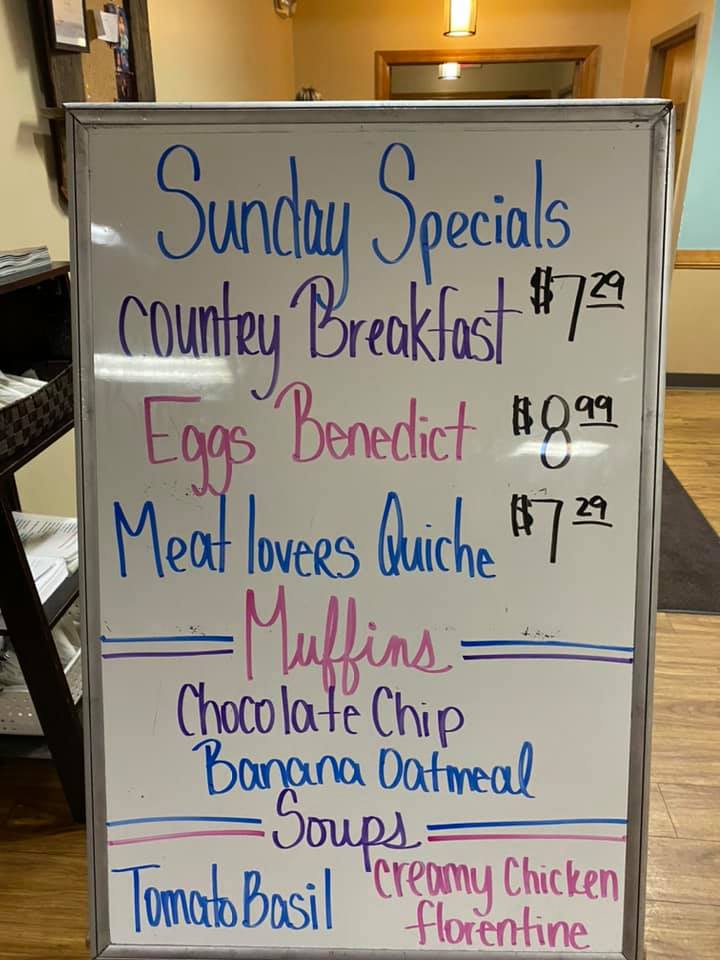 Sunday Specials
Country Breakfast $7.29
Eggs Benedict $8.99
Meat lovers Quiche $7.29
Muffins
Chocolate Chip
Banana Oatmeal
Soups
Tomato Basil
Creamy Chicken
florentine